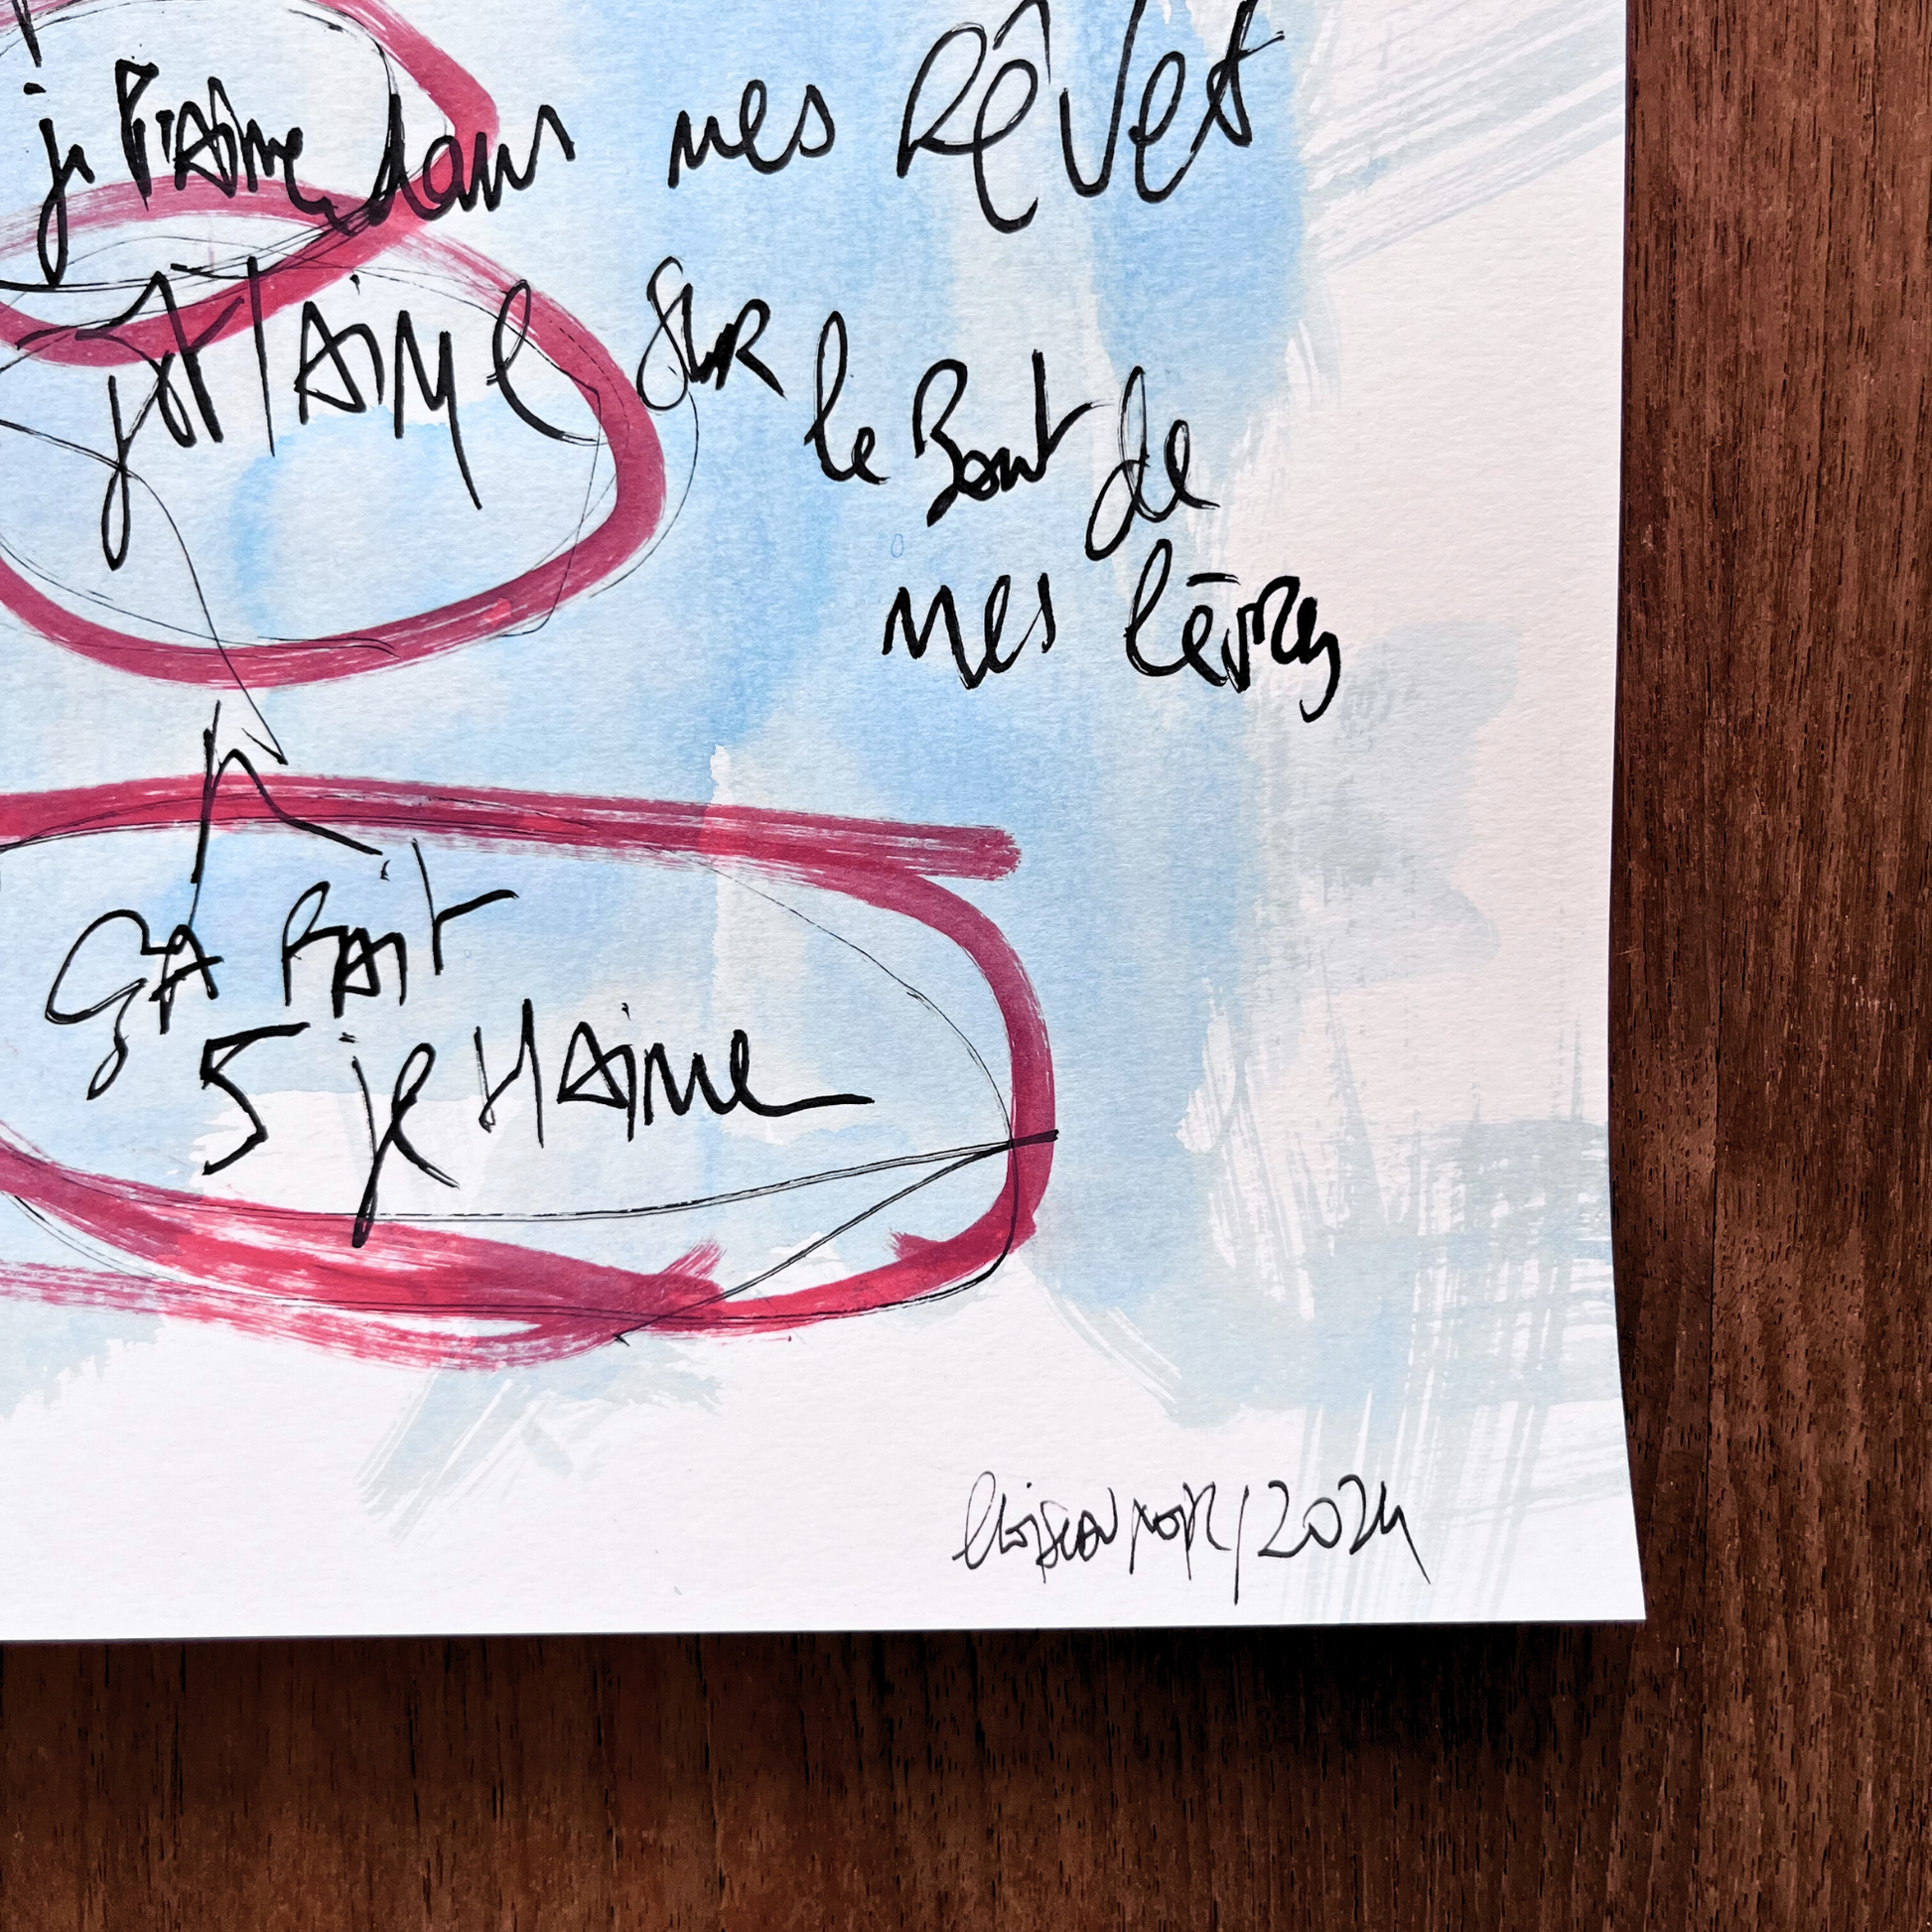 je t'aime dans mes Rêves
je t'aime sur
le Bout de
mes lèvres
ça fait
5 je t'aime
/2024